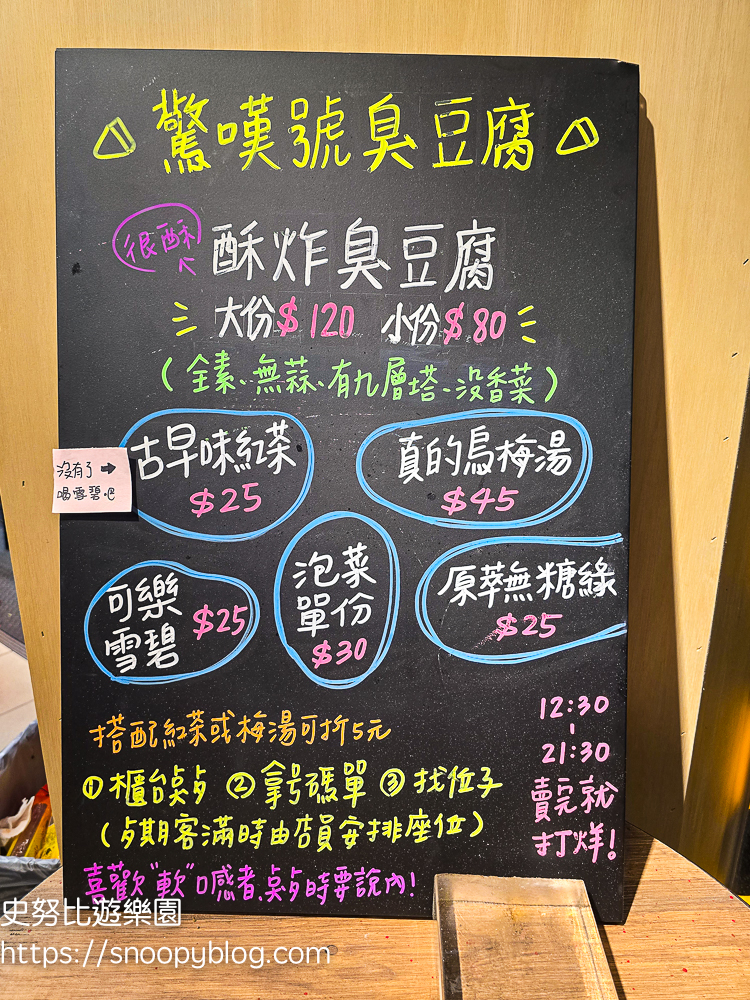 驚嘆號臭豆腐
很酥
酥炸臭豆腐
大份$120 小份$80
(全素、無蒜、有九層塔、沒香菜)
沒有了➡
喝雪碧吧
古早味紅茶
$25
真的烏梅湯
$45
可樂
雪碧
$25
泡菜
單份
$30
原萃無糖綠
$25
搭配紅茶或梅湯可折5元
①櫃台點 ②拿号碼單 ③找位子
(點期客滿時由店員安排座位)
喜歡"軟"口感者,點時要說內!
12:30
-
21:30
賣完就
打烊!
史努比遊樂園
https://snoopyblog.com